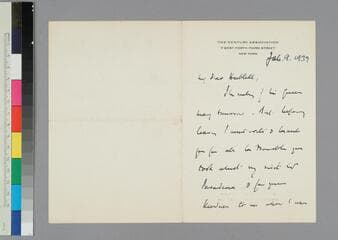 THE CENTURY ASSOCIATION
7 WEST FORTY-THIRD STREET
NEW YORK
1939
My dear Hubble,
I'm sailing by the Queen
Mary tomorrow. But before
leaving I must write to thank
you for all the trouble you
took about my visit to
Pasadena & for your
kindness to me when I was